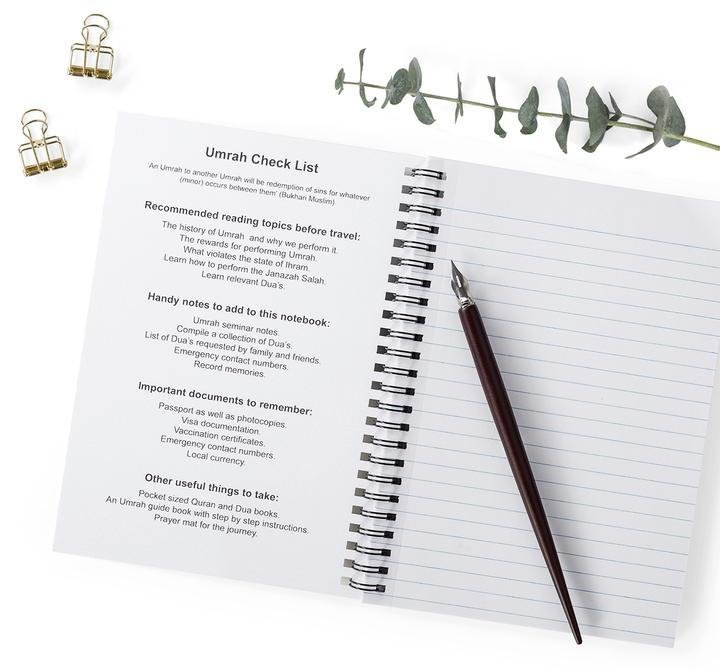 Umrah Check List
'An Umrah to another Umrah will be redemption of sins for whatever
(minor) occurs between them' (Bukhari Muslim)
Recommended reading topics before travel:
The history of Umrah and why we perform it.
The rewards for performing Umrah.
What violates the state of Ihram.
Learn how to perform the Janazah Salah.
Learn relevant Dua's.
Handy notes to add to this notebook:
Umrah seminar notes.
Compile a collection of Dua's.
List of Dua's requested by family and friends.
Emergency contact numbers.
Record memories.
Important documents to remember:
Passport as well as photocopies.
Visa documentation.
Vaccination certificates.
Emergency contact numbers.
Local currency.
Other useful things to take:
Pocket sized Quran and Dua books.
An Umrah guide book with step by step instructions.
Prayer mat for the journey.